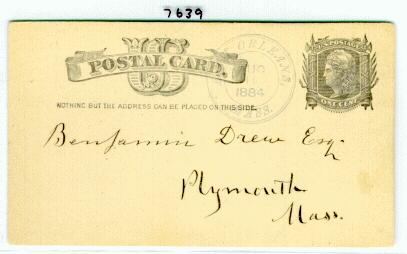 7639
US
POSTAL CARD.
NOTHING BUT THE ADDRESS CAN BE PLACED ON THIS SIDE.
ORLEANS,
1884
MASS.
U.S. POSTAGE
ONE CENT
Benjamin Drew Esq.
Plymouth
Mass.